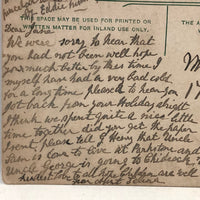 & Eddie
THIS SPACE MAY BE USED FOR PRINTED OR
WRITTEN MATTER FOR INLAND USE ONLY.
Dear
We were sorry to hear that
you had not been well hope
you much better by this time I
myself have had a very bad cold
for a long time pleased to hear you
got back from your Holiday alright
I think we spent quite a nice little
time together did you get the paper
I sent, please tell Henry that Uncle
Sam is love to live at Parkstone and
Uncle George is going to
kindest love to all hope Children are well
from